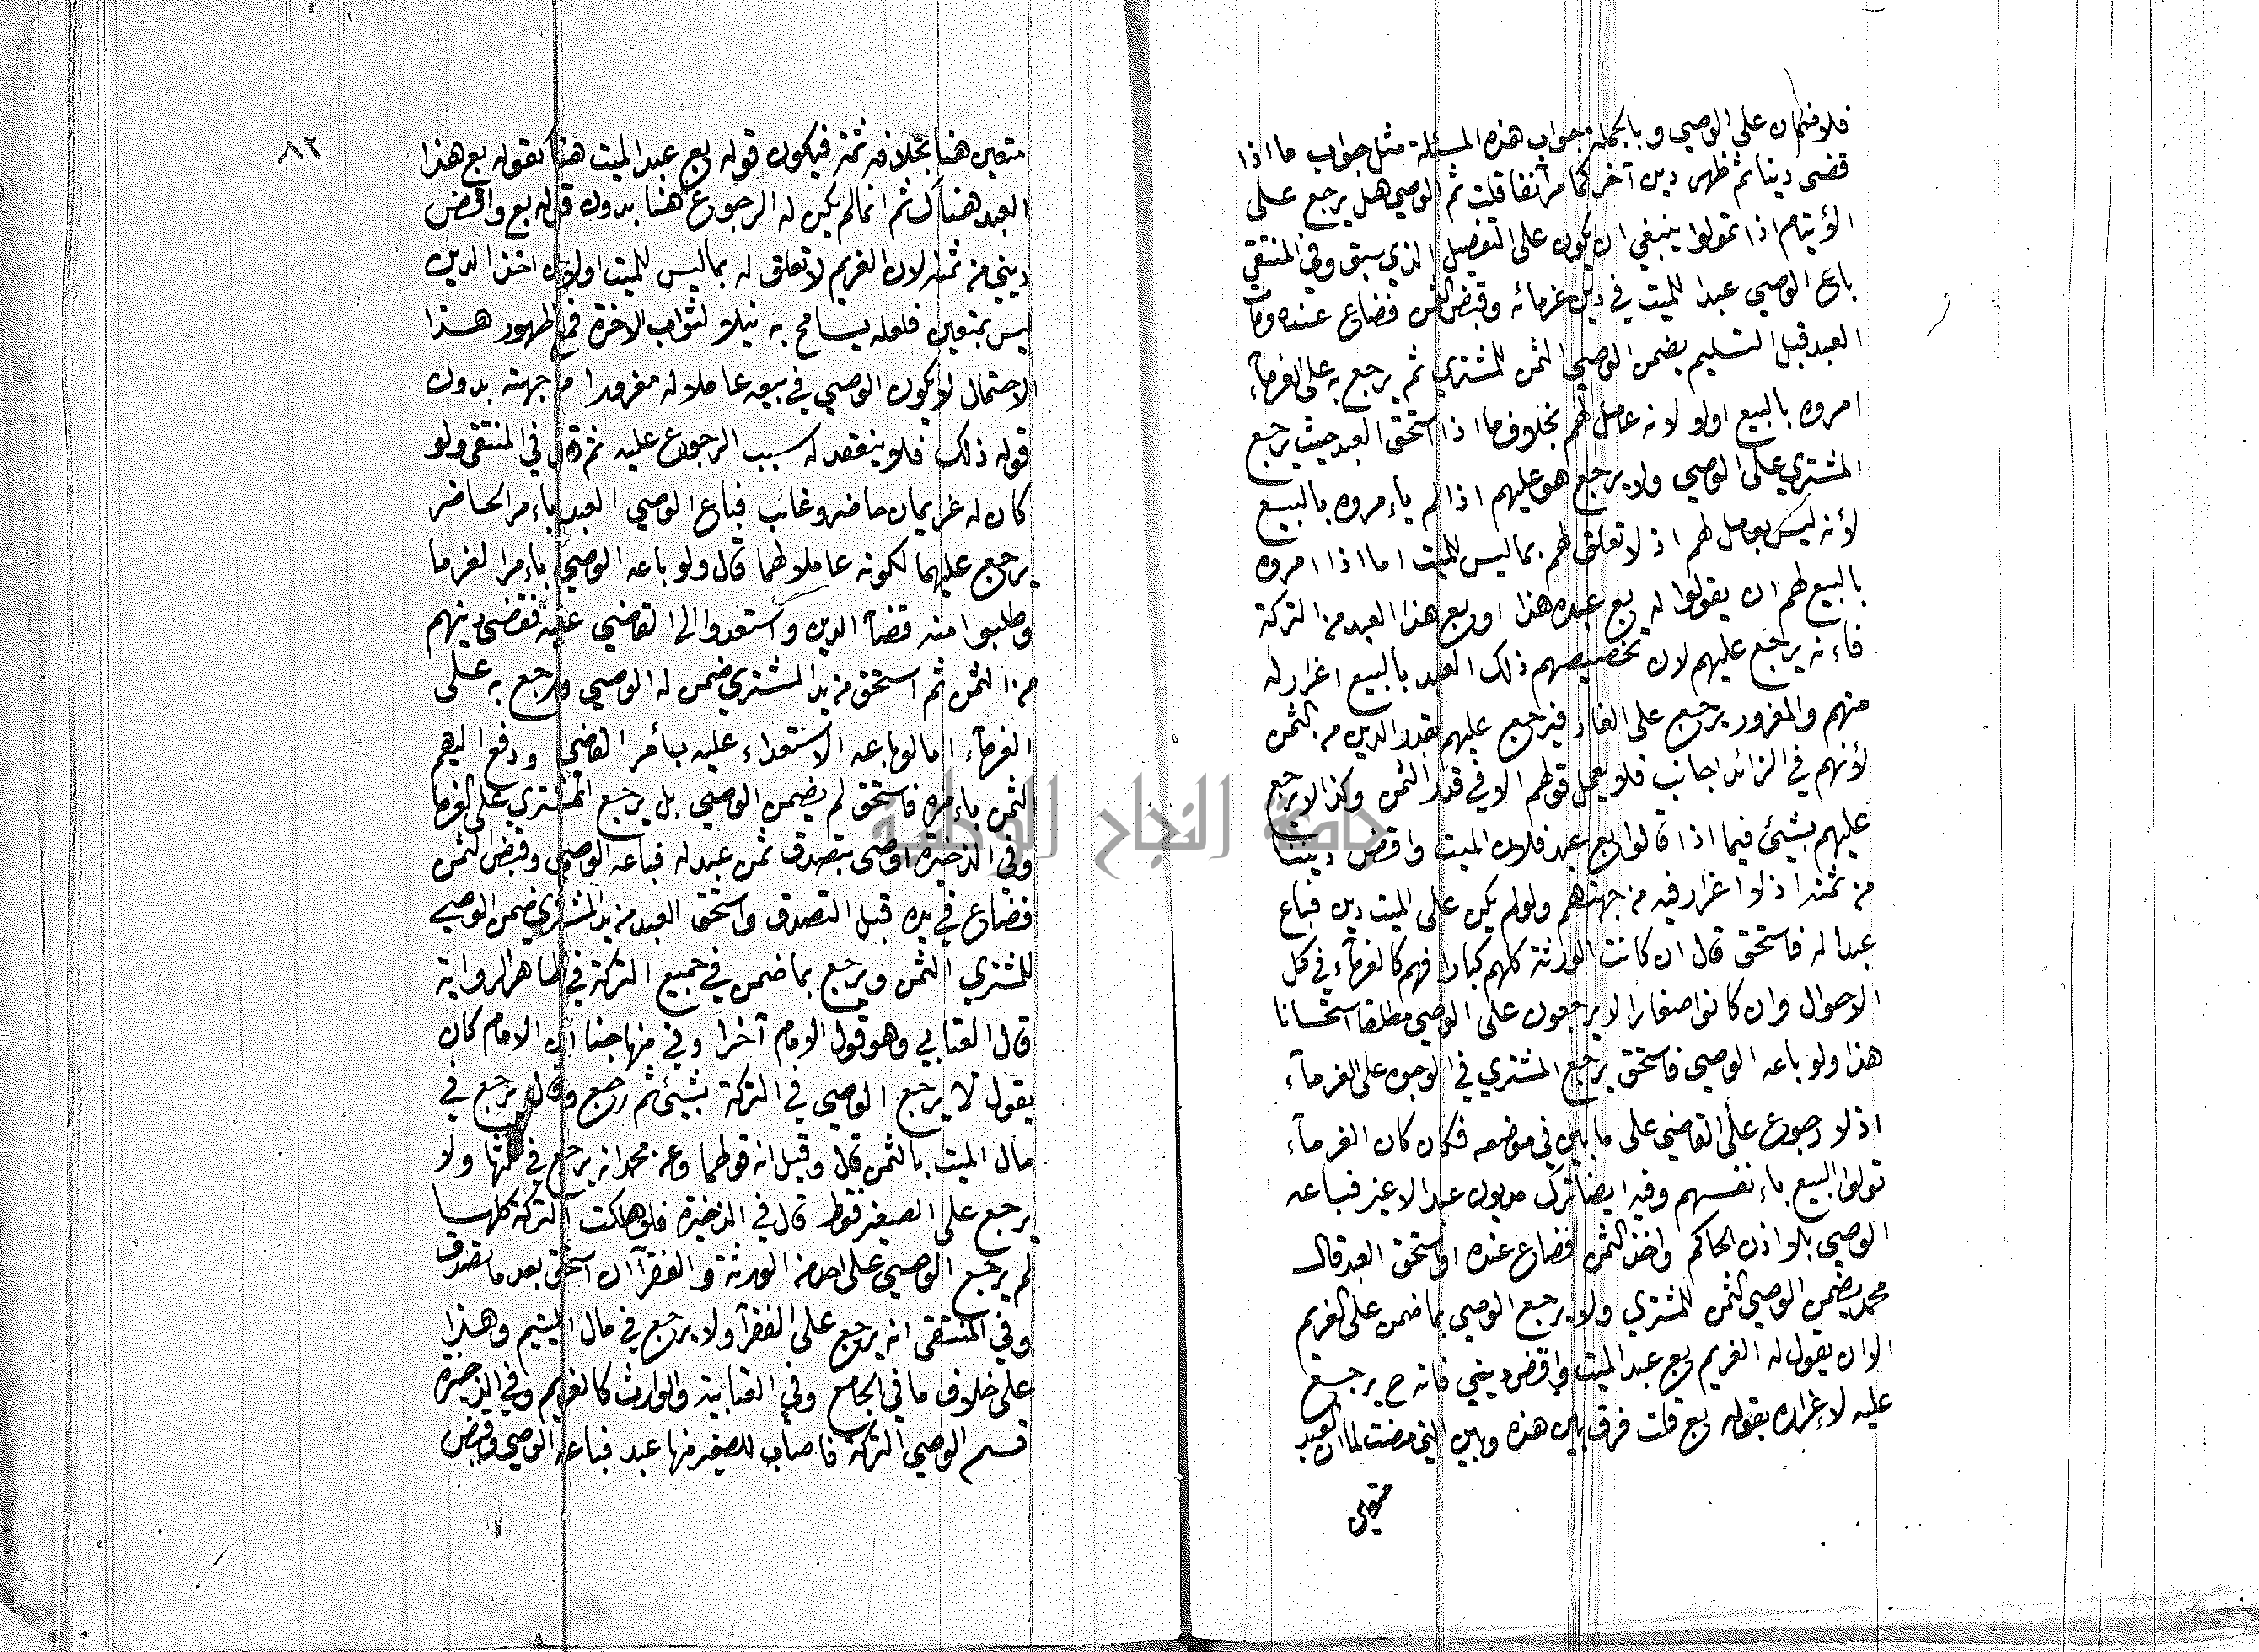 فلا ضمان على الوصي وبالجملة جواب هذه المسئلة مثل جواب ما اذا
قضى دينا ثم ظهر دين آخر كما مر آنفا قلت ثم الوصي هل يرجع على
الأيتام اذا تمولوا ينبغي ان يكون على التفصيل الذي سبق وفي المنتقى
باع الوصي عبدا للميت في دين غرمائه وقبض الثمن فضاع عنده ومات
العبد قبل التسليم يضمن الوصي الثمن للمشتري ثم يرجع به على الغرمآء
امروه بالبيع اولا لانه عامل لهم بخلاف ما اذا استحق العبد حيث يرجع
المشتري على الوصي ولا يرجع هو عليهم اذا لم يأمروه بالبيع
لأنه ليس بعامل لهم اذ لا تعلق لهم بما ليس للميت اما اذا امروه
بالبيع لهم ان يقولوا له بع عبده هذا او بع هذا العبد من التركة
فإنه يرجع عليهم لان تخصيصهم ذلك العبد بالبيع اغرار له
منهم والمغرور يرجع على الغار فيرجع عليهم بقدر الدين من الثمن
لأنهم في الزائد اجانب فلا يعمل قولهم الا في قدر الثمن وكذا لا يرجع
عليهم بشيئ فيما اذا قالوا بع عبد فلان الميت واقض ديننا
من ثمنه اذ لا اغرار فيه من جهتهم ولو لم يكن على الميت دين فباع
عبدا له فاستحق قال ان كانت الورثة كلهم كبارا فهم كالغرمآء في كل
الاحوال وان كانوا صغارا لا يرجعون على الوصي مطلقا استحسانا
هذا ولو باعه الوصي فاستحق يرجع المشتري في الوجوه على الغرمآء
اذ لا رجوع على القاضي على ما بين في موضعه فكان كان الغرمآء
تولوا البيع بأنفسهم وفيه ايضا ترك مديون عبدا لا غير فباعه
الوصي بلا اذن الحاكم واخذ الثمن فضاع عنده او استحق العبد قال
محمد يضمن الوصي الثمن للمشتري ولا يرجع الوصي بما ضمن على الغريم
الا ان يقول له الغريم بع عبد الميت واقض ديني فانه ح يرجع
عليه لإغراره بقوله بع قلت فرق بين هذه وبين التي مضت لما ان العبد
متعين
٨٢
متعين هنا بخلافه ثمة فيكون قوله بع عبد الميت هنا كقوله بع هذا
العبد هناك ثم انما لم يكن له الرجوع هنا بدون قوله بع واقض
ديني من ثمنه لان الغريم لا تعلق له بما ليس للميت او لان اخذ الدين
ليس بمتعين فلعله يسامح به نيلا لثواب الاخرة فمع ظهور هذا
الاحتمال لا يكون الوصي في بيعه عاملا له مغرورا من جهته بدون
قوله ذلك فلا ينعقد له سبب الرجوع عليه ثم قال في المنتقى ولو
كان له غريمان حاضر وغائب فباع الوصي العبد بأمر الحاضر
يرجع عليهما لكونه عاملا لهما قال ولو باعه الوصي بأمر الغرما
وطلبوا منه قضآ الدين واستعدوا الى القاضي عليه فقضى دينهم
من الثمن ثم استحق من يد المشتري ضمن له الوصي ورجع به على
الغرمآء اما لو باعه الاستعداء عليه بأمر القاضي ودفع اليهم
الثمن بأمره فاستحق لم يضمن الوصي بل يرجع المشتري على الغرما
وفي الذخيرة اوصى بتصدق ثمن عبد له فباعه الوصي وقبض الثمن
فضاع في يده قبل التصدق واستحق العبد من يد المشتري ضمن الوصي
للمشتري الثمن ويرجع بما ضمن في جميع التركة في ظاهر الرواية
قال العتابي وهو قول الامام آخرا وفي منهاجنا ان الامام كان
يقول لا يرجع الوصي في التركة بشيئ ثم رجع وقال يرجع في
مال الميت بالثمن قال وقيل انه قولهما وعن محمد انه يرجع في ثلثها ولا
يرجع على الصغير فقط قال في الذخيرة فلو هلكت التركة كلها
لم يرجع الوصي على احد من الورثة والفقرآ ان استحق بعد ما تصدق
وفي المنتقى انه يرجع على الفقرآ ولا يرجع في مال اليتيم وهذا
على خلاف ما في الجامع وفي العتابية والوارث كالغريم وفي الذخيرة
قسم الوصي التركة فاصاب للصغير منها عبد فباعه الوصي وقبض
جامعة النجاح الوطنية